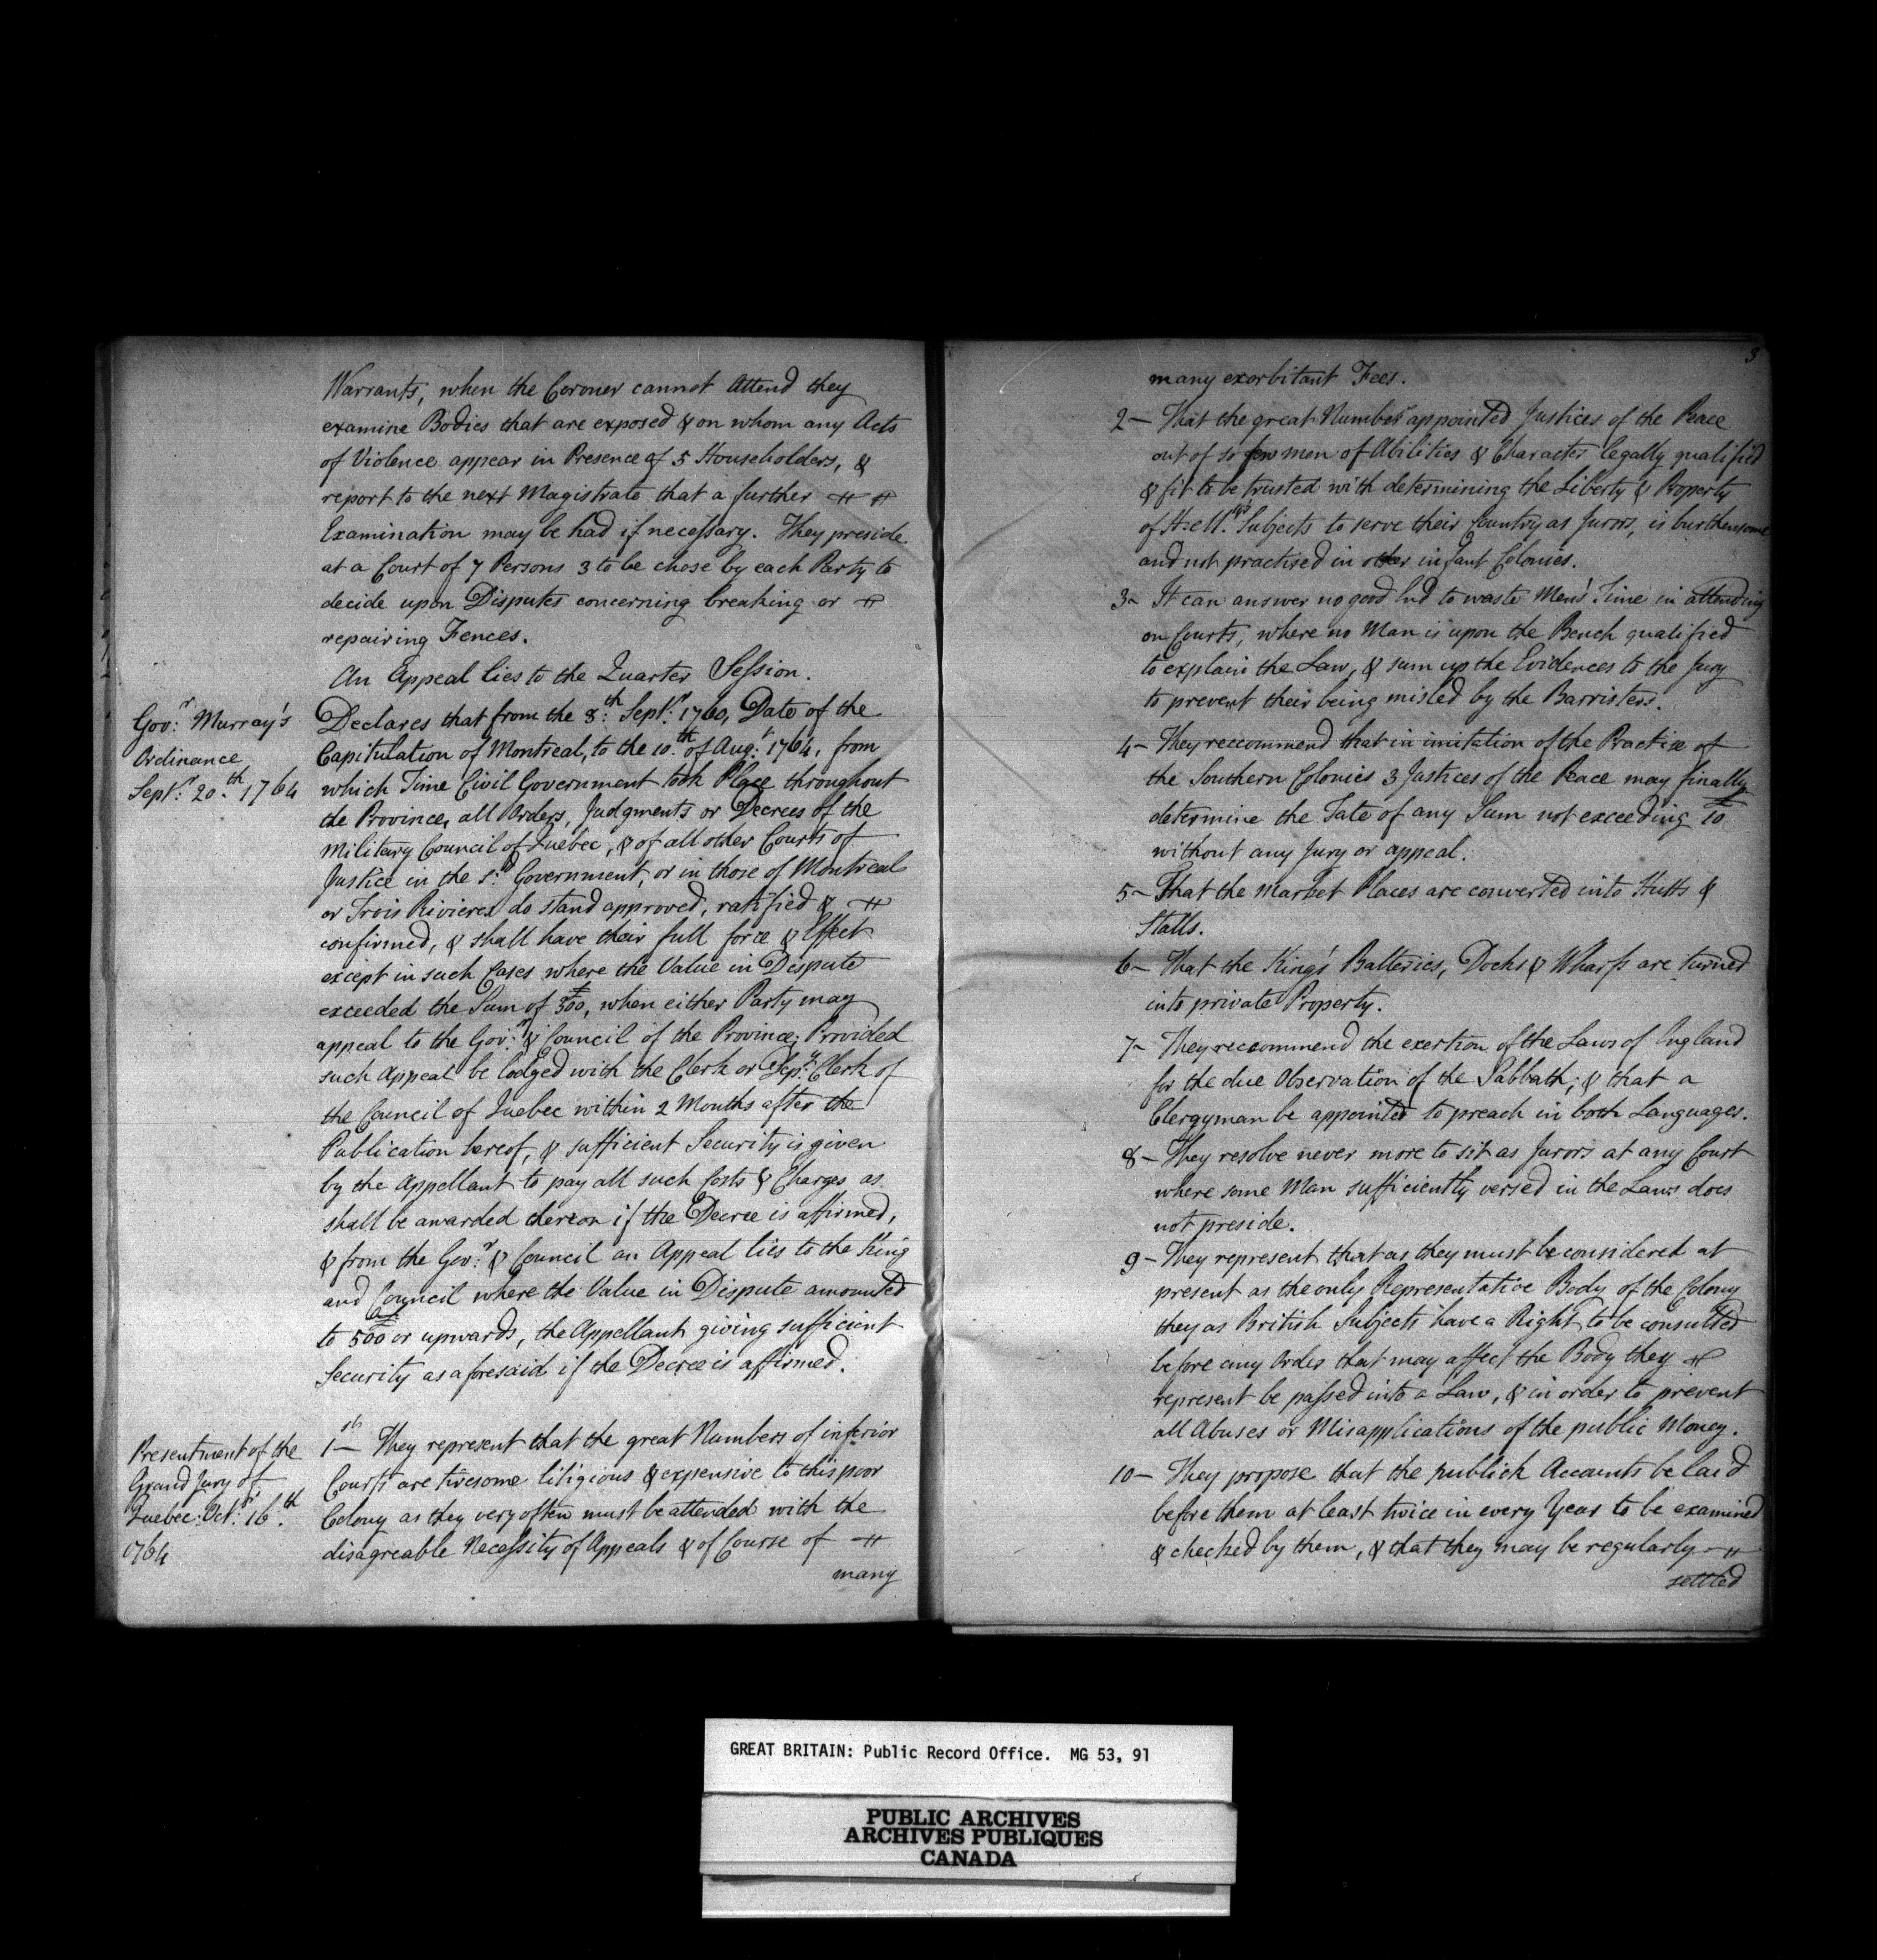 Warrants, when the Coroner cannot Attend they
examine Bodies that are exposed & on whom any Acts
of Violence appear in Presence of 5 Householders, &
report to the next Magistrate that a further
Examination may be had if necessary. They preside
at a Court of 7 Persons 3 to be chose by each Party to
decide upon Disputes concerning breaking or
repairing Fences.
An Appeal lies to the Quarter Session.
Gov:r Murray's
Ordinance
Sept:r 20.th 1764
Declares that from the 8:th Sept:r 1760, Date of the
Capitulation of Montreal, to the 10.th of Aug:t 1764, from
which Time Civil Government took Place throughout
the Province, all Orders, Judgments or Decrees of the
Military Council of Quebec, & of all other Courts of
Justice in the s:d Government, or in those of Montreal
or Trois Rivieres do stand approved, ratified &
confirmed, & shall have their full force & Effect
except in such Cases where the Value in Dispute
exceeded the Sum of £300, when either Party may
appeal to the Gov:r & Council of the Province; Provided
such Appeal be lodged with the Clerk or Dep:y Clerk of
the Council of Quebec within 2 Months after the
Publication hereof, & sufficient Security is given
by the Appellant to pay all such Costs & Charges as
shall be awarded thereon if the Decree is affirmed,
& from the Gov:r & Council an Appeal lies to the King
and Council where the Value in Dispute amounted
to £500 or upwards, the Appellant giving sufficient
Security as aforesaid if the Decree is affirmed.
Presentment of the
Grand Jury of
Quebec: Oct:r 16.th
1764
1st— They represent that the great Numbers of inferior
Courts are tiresome litigious & expensive to this poor
Colony as they very often must be attended with the
disagreable Necessity of Appeals & of Course of
many
3
many exorbitant Fees.
2— That the great Number appointed Justices of the Peace
out of so few men of Abilities & Character legally qualified
& fit to be trusted with determining the Liberty & Property
of H: M.'s Subjects to serve their Country as Jurors, is burthensome
and not practised in other infant Colonies.
3— It can answer no good End to waste Men's Time in attending
on Courts, where no Man is upon the Bench qualified
to explain the Law, & sum up the Evidences to the Jury
to prevent their being misled by the Barristers.
4— They reccommend that in imitation of the Practise of
the Southern Colonies 3 Justices of the Peace may finally
determine the Fate of any Sum not exceeding £10
without any Jury or appeal.
5— That the Market Places are converted into Hutts &
Stalls.
6— That the King's Batteries, Docks & Wharfs are turned
into private Property.
7— They reccommend the exertion of the Laws of England
for the due Observation of the Sabbath; & that a
Clergyman be appointed to preach in both Languages.
8— They resolve never more to sit as Jurors at any Court
where some Man sufficiently versed in the Laws does
not preside.
9— They represent that as they must be considered at
present as the only Representative Body of the Colony
they as British Subjects have a Right to be consulted
before any Order that may affect the Body they
represent be passed into a Law, & in order to prevent
all Abuses or Misapplications of the public Money.
10— They propose that the publick Accounts be laid
before them at least twice in every Year to be examined
& checked by them, & that they may be regularly
settled
GREAT BRITAIN: Public Record Office. MG 53, 91
PUBLIC ARCHIVES
ARCHIVES PUBLIQUES
CANADA